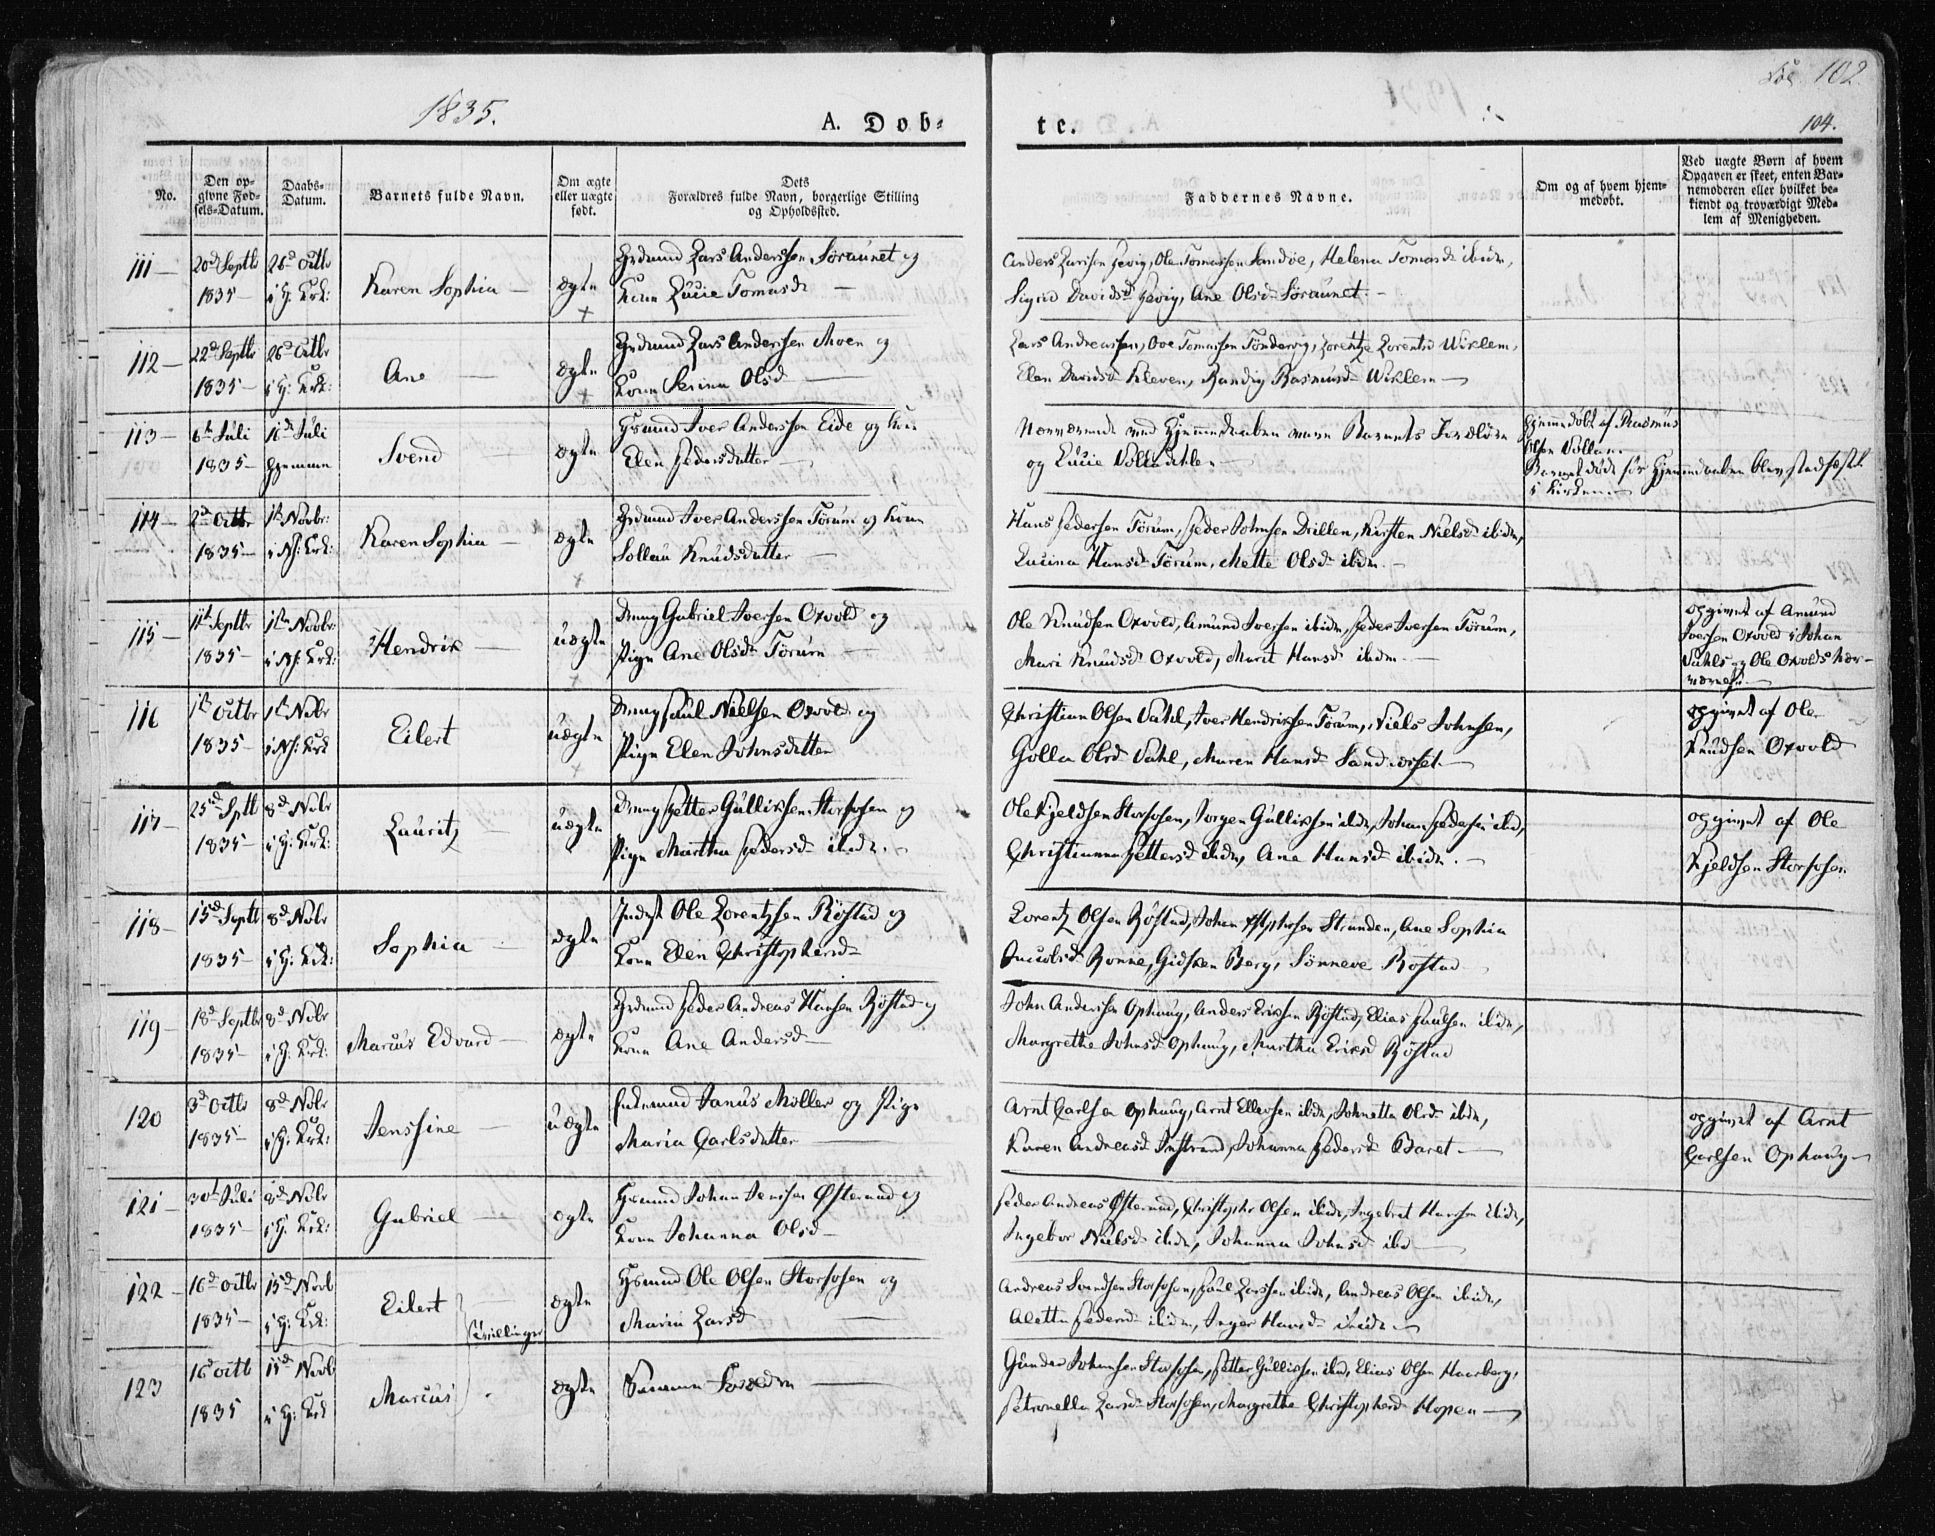 1835.
A. Døb-
te.
102.
104.
No.
Den op-
givne Fød-
sels-Datum.
Daabs-
Datum.
Barnets fulde Navn.
Om ægte
eller uægte
født.
Dets
Forældres fulde Navn, borgerlige Stilling
og Opholdssted.
Faddernes Navne.
Om og af hvem hjem-
medøbt.
Ved uægte Børn af hvem
Opgaven er skeet, enten Bar-
nemoderen eller hvilket be-
kiendt og troværdigt Med-
lem af Menigheden.
111 — 20d Septbr 26d Octbr
1835 —
Karen Sophia —
ægte
Lars Anderssen Söraunet og
Kone Lucie Tomasd. —
Anders Larssen Hevig, Ole Tomassen Sandöe, Helena Tomasd. ibidm,
Sigrid Davidsd. Hevig, Ane Olsd. Söraunet. —
112 — 22d Septbr 26d Octbr
1835 —
Ane —
ægte
Lars Anderssen Moen og
Kone Serina Olsd. —
Lars Andreassen, Ove Tomassen Töndervig, Lorentze Lorentsd. Wiklem,
Elen Davidsd. Kleven, Randig Rasmusd. Wiklem —
113 — 6te Juli 16de Juli
1835 — Hjemme
Svend
ægte
Gaardmd Iver Anderssen Eide og Kone
Elen Pedersdatter —
Nærværende ved Hjemmedaaben vare Barnets Forældre
og Lucie —
Hjemmedöbt af Rasmus
Olsen Vollan.
Barnet döde för Hjemmedaaben blev stadfæstet
i Kirken. —
114 — 2d Octbr 1te Novbr:
1835 —
Karen Sophia —
ægte
Iver Anderssen Törum og Kone
Sollau Knudsdatter —
Hans Pedersen Törum, Peder Johnsen Drillen, Kirsten Nielsd. ibidm,
Lucina Hansd. Törum, Mette Olsd. ibidm. —
115 — 11te Septbr 1te Novbr:
1835 —
Hendrik —
uægte
Dreng Gabriel Iversen Oxvold og
Pige Ane Olsd. Törum —
Ole Knudsen Oxvold, Amund Iversen ibidm, Peder Iversen Törum,
Mari Knudsd. Oxvold, Marit Hansd. ibidm. —
opgivet af Amund
Iversen Oxvold i Johan
Vahls og Ole Oxvolds Nær-
værelse. —
116 1te Octbr 1te Nobr
1835 —
Eilert
uægte
Dreng Paul Nielsen Oxvold og
Pige Elen Johnsdatter
Christian Olsen Vahl, Iver Hendriksen Törum, Niels Johnsen,
Golla Olsd. Vahl, Maren Hansd. Sandnesset. —
opgivet af Ole
Knudsen Oxvold
117 — 25d Septb 8d Nobr
1835 —
Lauritz —
uægte
Dreng Petter Gulliksen Storfosen og
Pige Martha Pedersd. ibidm. —
Ole Kjeldsen Storfosen, Jörgen Gulliksen ibidm, Johan Pedersen ibid,
Christianna Pettersd. ibidm, Ane Hansd. ibidm. —
opgivet af Ole
Kjeldsen Storfosen
118 — 15d Septb 8d Nobr
1835 —
Sophia —
ægte
Inderst Ole Lorentzsen Röstad og
Kone Elen Christophersd. —
Lorentz Olsen Röstad, Johan Stranden, Ane Sophia
Jacobsd. Rönne, Gidsken Berg, Sönneve Röstad —
119 — 18d Septbr 8d Nobr
1835 —
Marcus Edvard —
ægte
Peder Andreas Hansen Röstad og
Kone Ane Andersd. —
John Anderssen Ophaug, Anders Eriksen Röstad, Elias Paulsen ibidm,
Margrethe Johnsd. Ophaug, Martha Eriksd. Röstad
120 3d Octbr 8d Nobr
1835 —
Jensine —
uægte
Janus Möller og Pige
Maria Carlsdatter —
Arnt Carlsen Ophaug, Arnt Ellevsen ibidm, Johnetta Olsd. ibidm,
Karen Andreasd. Instrand, Johanna Pedersd. Baret —
opgivet af Arnt
Carlsen Ophaug —
121 — 30te Juli 8d Nobr
1835 —
Gabriel —
ægte
Gaardmd Johan Jenssen Österaad og
Kone Johanna Olsd. —
Peder Andreas Österaad, Christopher Olsen ibidm, Ingebret Hansen ibidm,
Ingebor Nielsd. ibidm, Johanna Johnsd. ibid —
122 — 16d Octbr 15d Novb
1835 —
Eilert —
Tvillinger
ægte
Ole Olsen Storfosen og
Maria Larsd. —
Andreas Svendsen Storfosen, Paul Larssen ibidm, Andreas Olsen ibidm,
Aletta Pedersd. ibidm, Inger Hansd. ibidm —
123 16d Octb 15d Novb
1835
Marcus
ægte
Samme Forældre —
Gunder Johansen Storfosen, Petter Gulliksen ibid, Elias Olsen Haarberg,
Petronella Larsd. Storfosen, Margrethe Christophersd. Hopen —